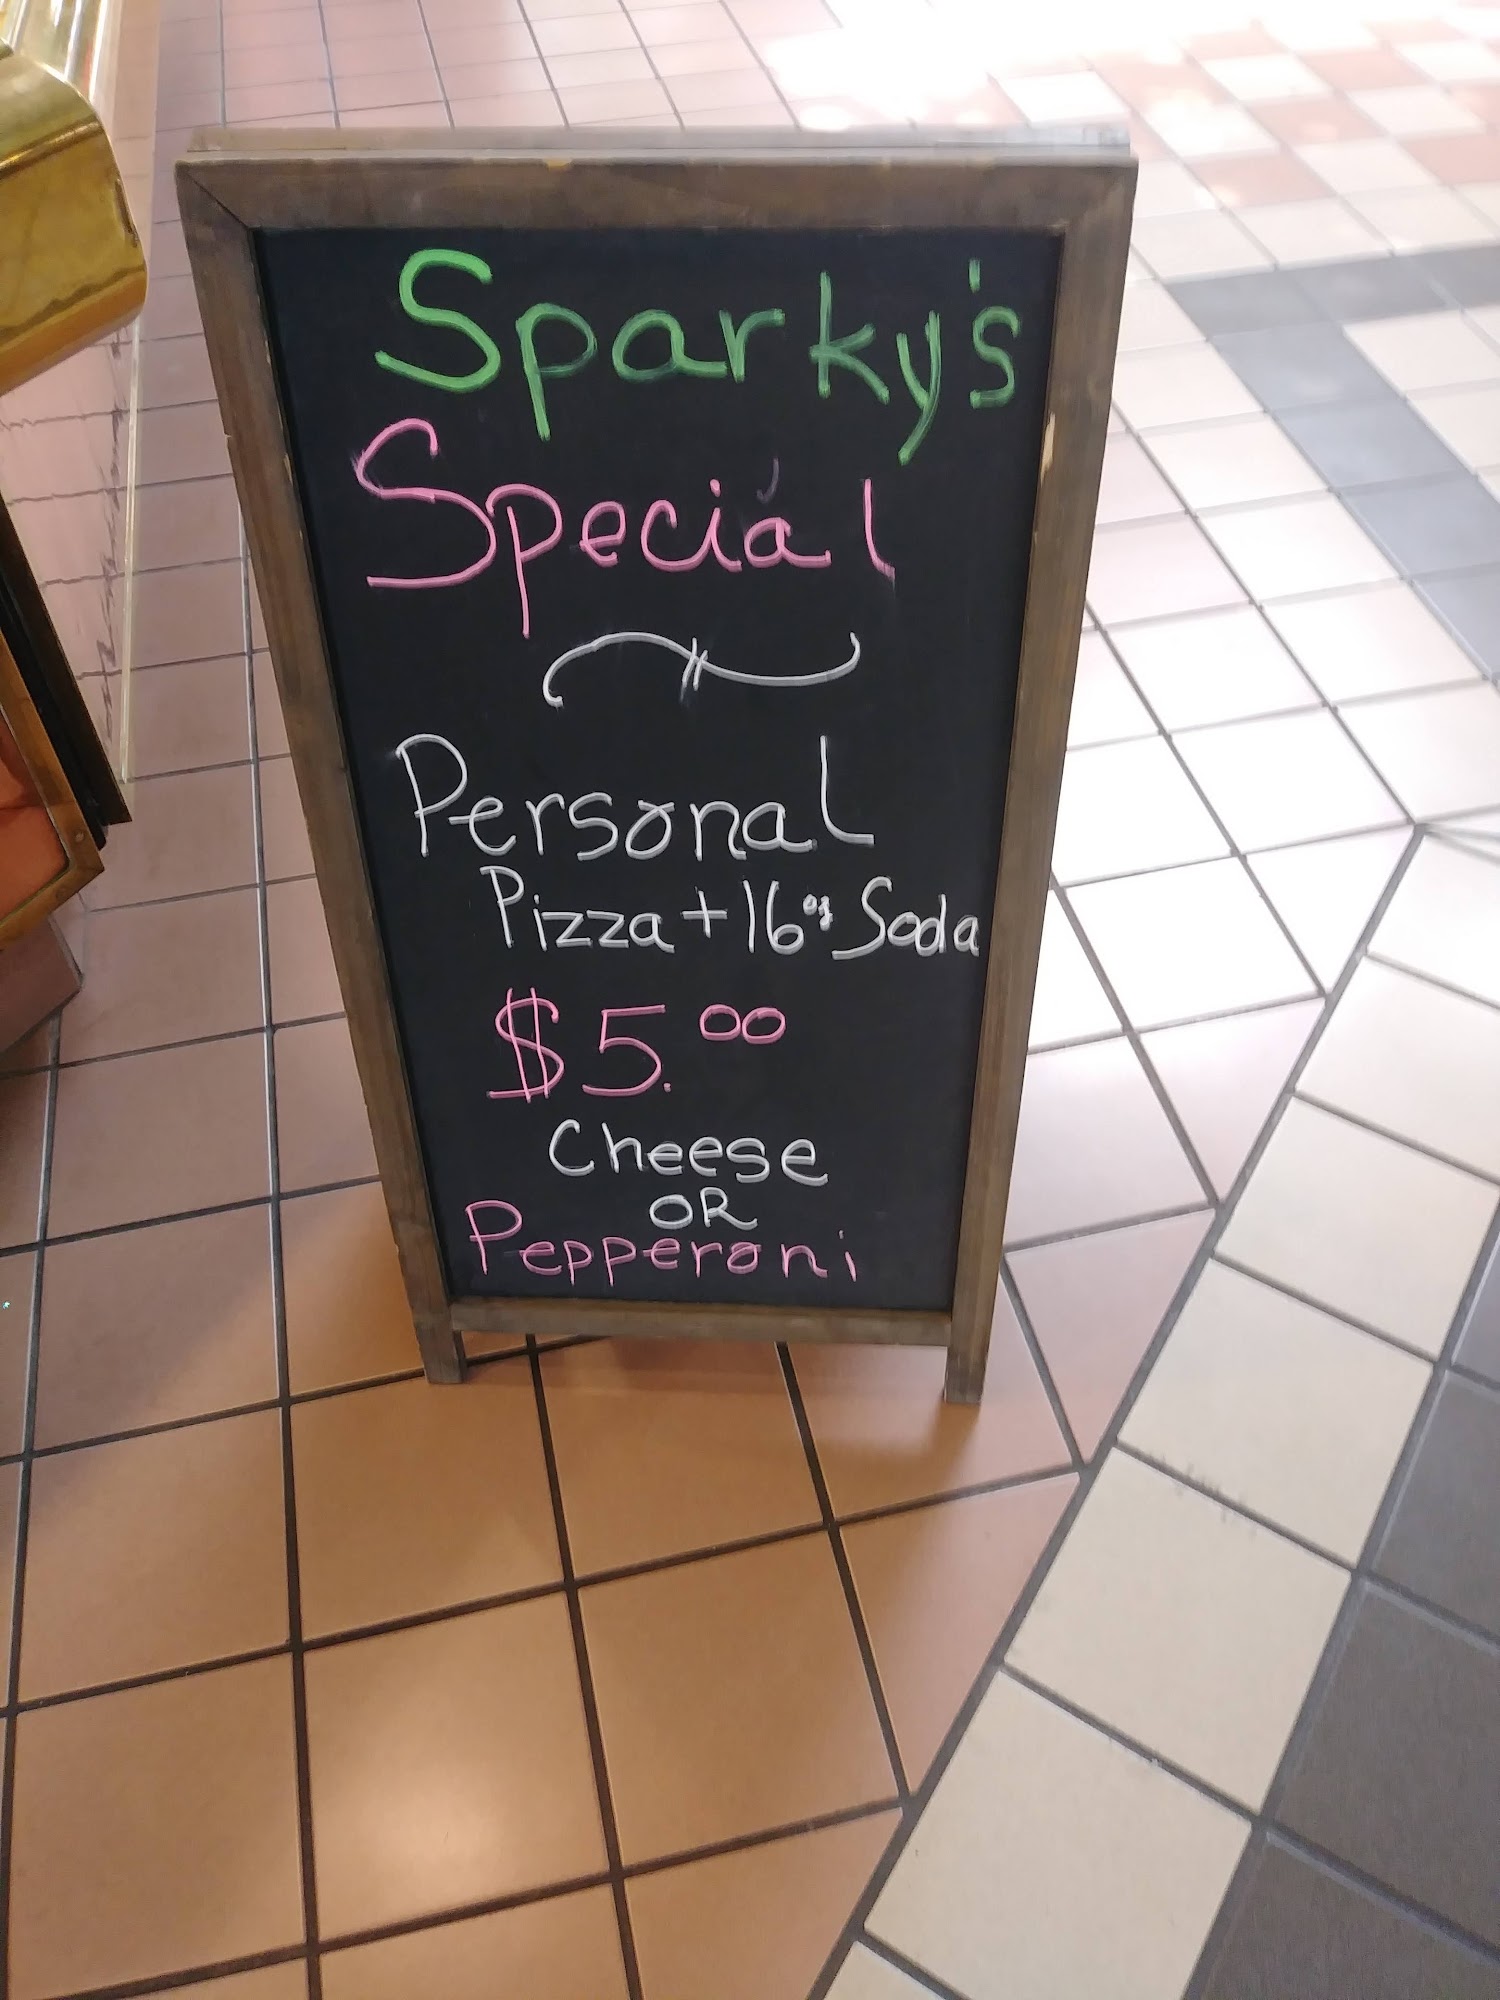 Sparky's
Special
Personal
Pizza + 16 oz Soda
$5.00
Cheese
OR
Pepperoni